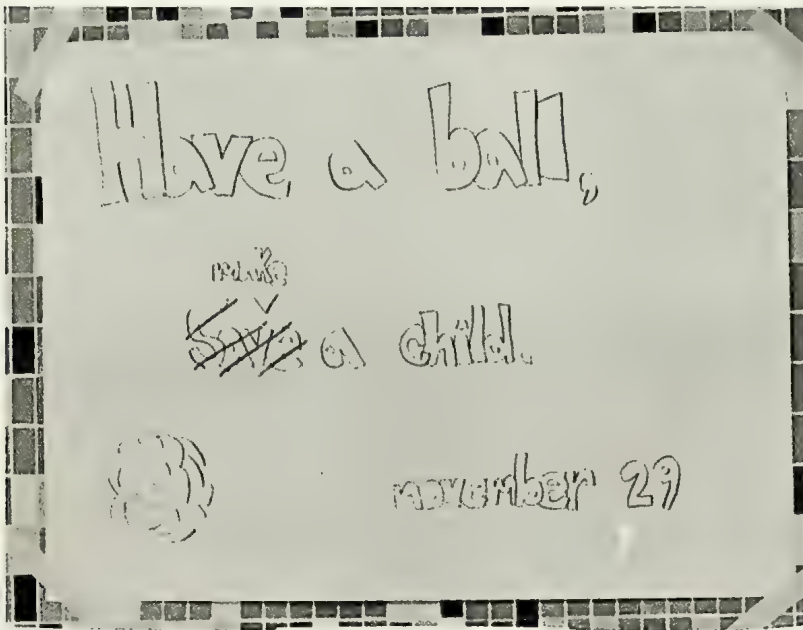 Have a ball,
Save a child.
november 29